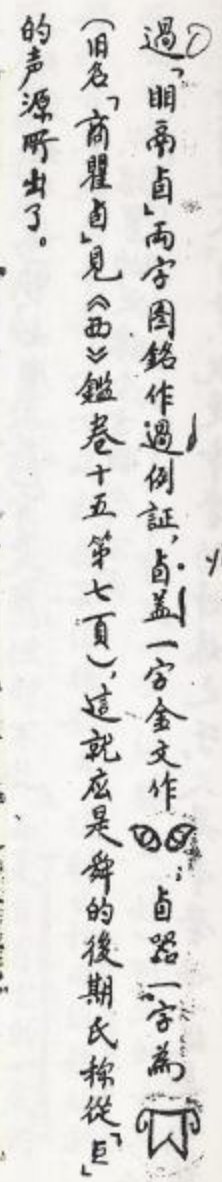 過「䀠鬲卣」兩字图銘作過例証,卣蓋一字金文作 ;卣器一字為
(旧名「商瞿卣」見《西》鑑卷十五第七頁),這就应是舜的後期氏称從「巨」
的声源所出了。